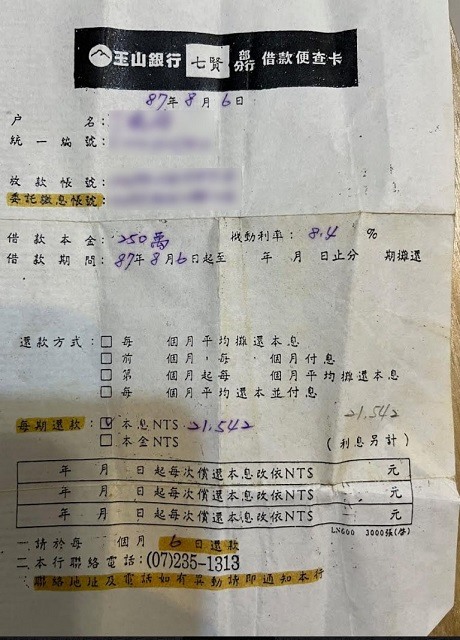 玉山銀行 七賢 部分行 借款便查卡
87年8月6日
戶名：
統一編號：
放款帳號：
委託繳息帳號：
借款本金：250萬 機動利率：8.4 %
借款期間：87年8月6日起至 年 月 日止分 期攤還
還款方式：□每 個月平均攤還本息
□前 個月，每 個月付息
□第 個月起每 個月平均攤還本息
□每 個月平均還本並付息
21,542
每期還款：☑本息NT$ 21,542
□本金NT$ (利息另計)
年 月 日起每次償還本息改依NT$ 元
年 月 日起每次償還本息改依NT$ 元
年 月 日起每次償還本息改依NT$ 元
LN600 3000張
一請於每 個月 6日還款
二本行聯絡電話：(07)235-1313
聯絡地址及電話如有異動請即通知本行